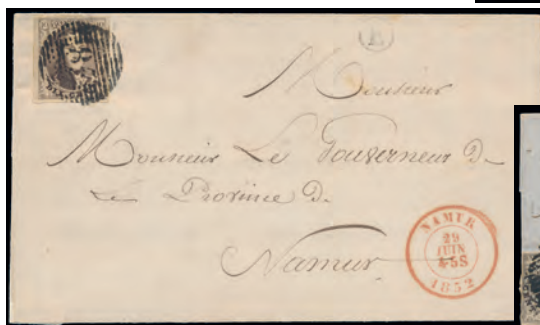 E
Monsieur
Monsieur Le Gouverneur De
La Province De
Namur
NAMUR
29
JUIN
1852